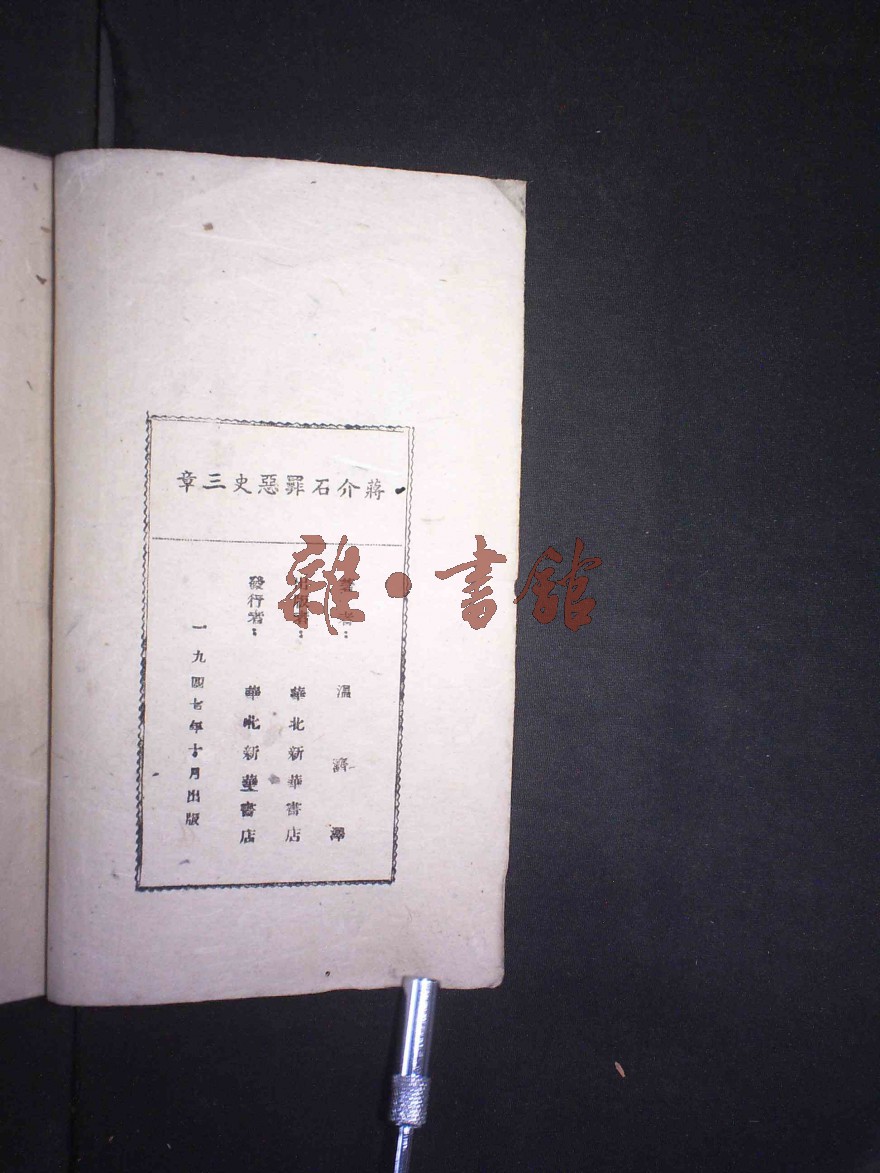 蔣介石罪惡史三章
著者：溫濟澤
出版者：華北新華書店
發行者：華北新華書店
一九四七年十月出版
雜·書館